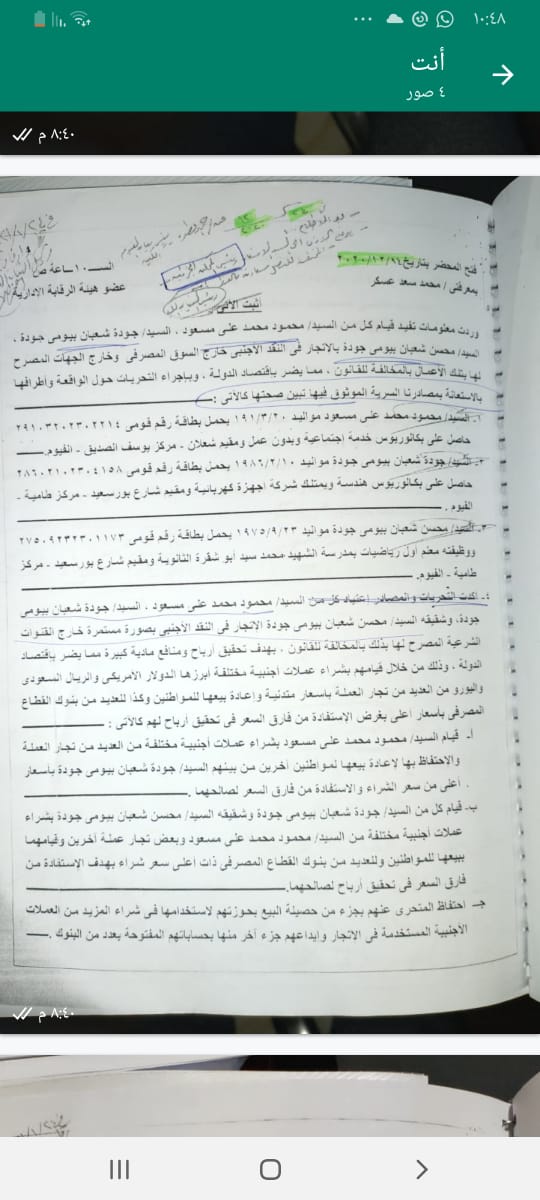 ١٠:٤٨
أنت
٤ صور
٨:٤٠ م
فتح المحضر بتاريخ
الســـ١٠ـــاعة ص
بمعرفتى / محمد سعد عسكر
عضو هيئة الرقابة الادارية
أثبت الآتى
وردت معلومات تفيد قيام كل من السيد/ محمود محمد على مسعود ، السيد/ جودة شعبان بيومى جودة ،
السيد/ محسن شعبان بيومى جودة بالاتجار فى النقد الأجنبى خارج السوق المصرفى وخارج الجهات المصرح
لها بتلك الأعمال بالمخالفة للقانون ، مما يضر بإقتصاد الدولة ، وبإجراء التحريات حول الواقعة وأطرافها
بالاستعانة بمصادرنا السرية الموثوق فيها تبين صحتها كالآتى :
١- السيد/ محمود محمد على مسعود مواليد ١٩١/٣/٢٠ يحمل بطاقة رقم قومى ٢٩١٠٣٢٠٢٣٠٢٢١٤
حاصل على بكالوريوس خدمة اجتماعية وبدون عمل ومقيم شعلان - مركز يوسف الصديق - الفيوم.
٢- السيد/ جودة شعبان بيومى جودة مواليد ١٩٨٦/٢/١٠ يحمل بطاقة رقم قومى ٢٨٦٠٢١٠٢٣٠٤١٥٨
حاصل على بكالوريوس هندسة ويمتلك شركة أجهزة كهربائية ومقيم شارع بورسعيد - مركز طامية -
الفيوم .
٣- السيد/ محسن شعبان بيومى جودة مواليد ١٩٧٥/٩/٢٣ يحمل بطاقة رقم قومى ٢٧٥٠٩٢٣٢٣٠١١٧٣
ووظيفته معلم أول رياضيات بمدرسة الشهيد محمد سيد أبو شقرة الثانوية ومقيم شارع بورسعيد - مركز
طامية - الفيوم.
٤- أكدت التحريات والمصادر إعتياد كل من السيد/ محمود محمد على مسعود ، السيد/ جودة شعبان بيومى
جودة، وشقيقه السيد/ محسن شعبان بيومى جودة الاتجار فى النقد الأجنبى بصورة مستمرة خارج القنوات
الشرعية المصرح لها بذلك بالمخالفة للقانون ، بهدف تحقيق أرباح ومنافع مادية كبيرة مما يضر بإقتصاد
الدولة ، وذلك من خلال قيامهم بشراء عملات أجنبية مختلفة أبرزها الدولار الامريكى والريال السعودى
واليورو من العديد من تجار العملة بأسعار متدنية وإعادة بيعها للمواطنين وكذا للعديد من بنوك القطاع
المصرفى بأسعار أعلى بغرض الإستفادة من فارق السعر فى تحقيق أرباح لهم كالآتى :
أ- قيام السيد/ محمود محمد على مسعود بشراء عملات أجنبية مختلفة من العديد من تجار العملة
والاحتفاظ بها لاعادة بيعها لمواطنين أخرين من بينهم السيد/ جودة شعبان بيومى جودة بأسعار
أعلى من سعر الشراء والاستفادة من فارق السعر لصالحهما .
ب- قيام كل من السيد/ جودة شعبان بيومى جودة وشقيقه السيد/ محسن شعبان بيومى جودة بشراء
عملات أجنبية مختلفة من السيد/ محمود محمد على مسعود وبعض تجار عملة أخرين وقيامهما
ببيعها للمواطنين وللعديد من بنوك القطاع المصرفى ذات أعلى سعر شراء بهدف الإستفادة من
فارق السعر فى تحقيق أرباح لصالحهما.
جـ- احتفاظ المتحرى عنهم بجزء من حصيلة البيع بحوزتهم لاستخدامها فى شراء المزيد من العملات
الأجنبية المستخدمة فى الاتجار وإيداعهم جزء أخر منها بحساباتهم المفتوحة بعدد من البنوك .
٨:٤٠ م